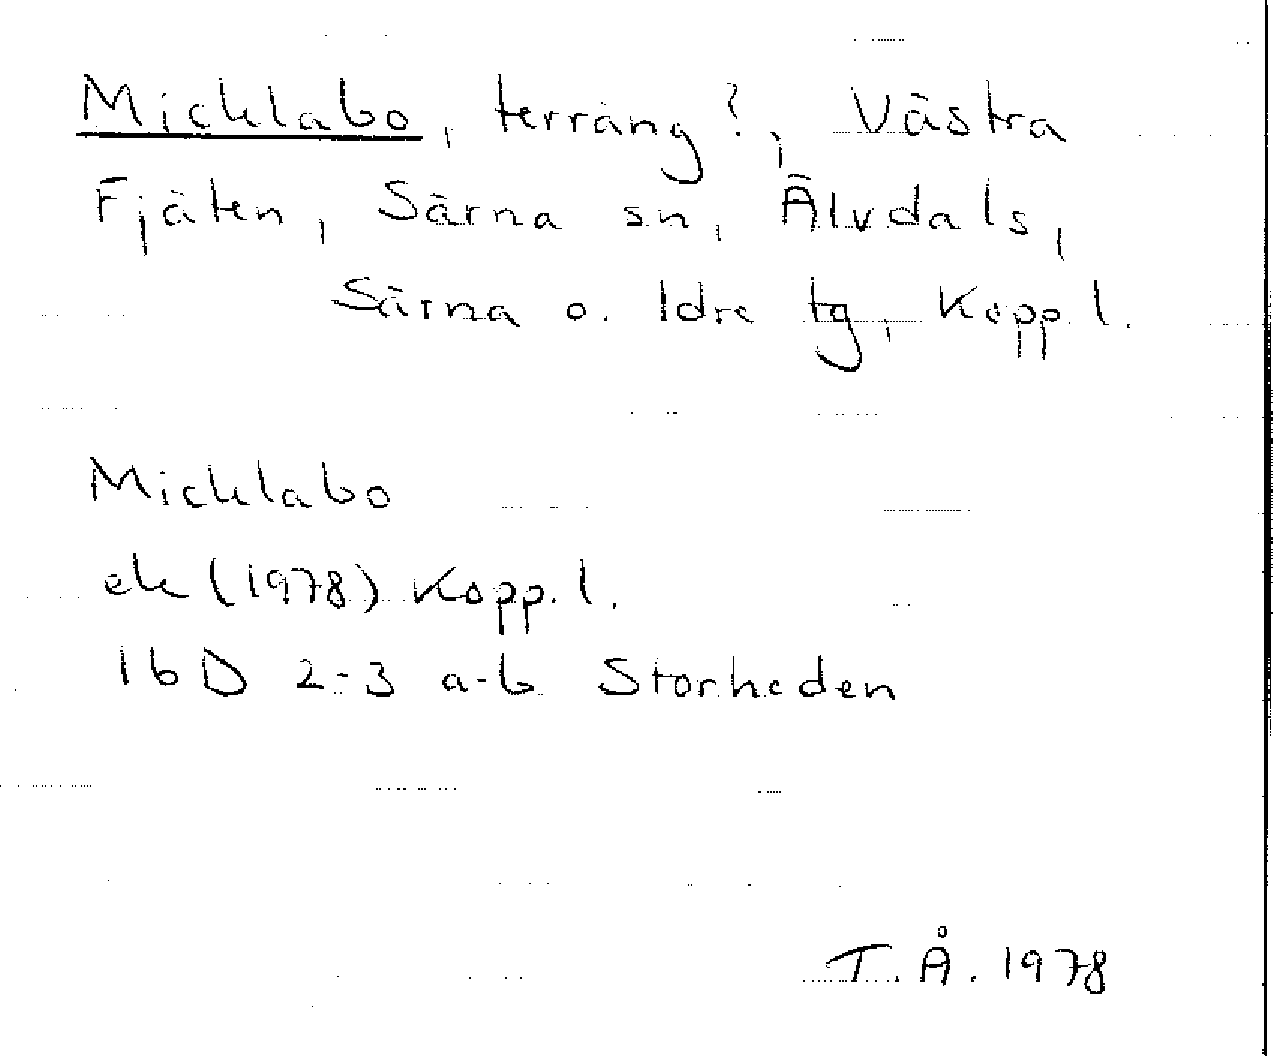 Micklabo, terräng?, Västra
Fjäten, Särna sn, Älvdals,
Särna o. Idre tg, Kopp. l.
Micklabo
ek (1978) Kopp. l.
16D 2-3 a-b Storheden
T.Å. 1978